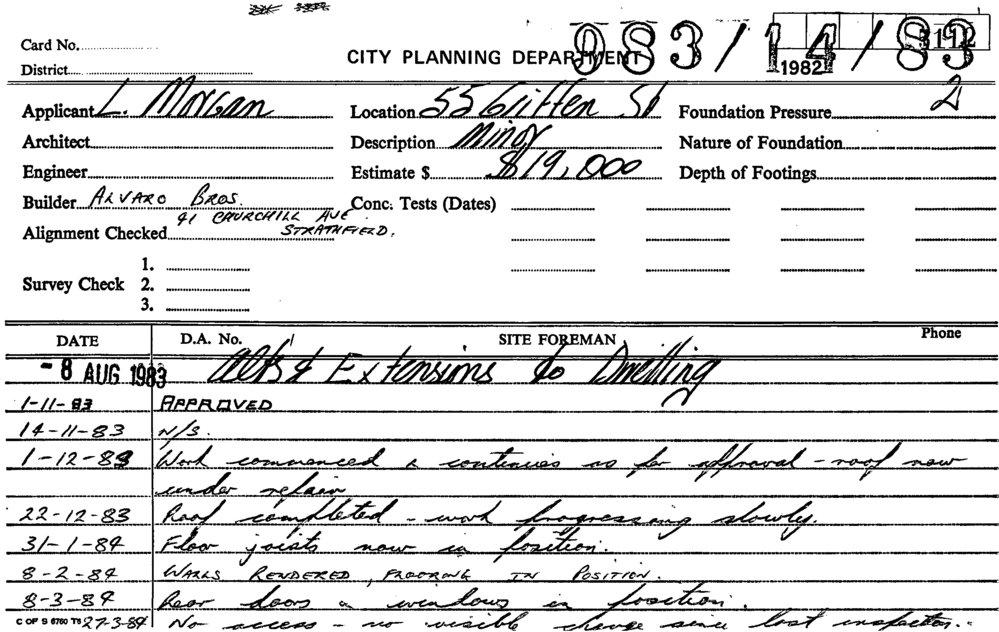 Card No.
District
CITY PLANNING DEPARTMENT
083/14/83
1982
Applicant L. Morgan
Location 55 Griffen St
Foundation Pressure 2
Architect
Description Minor
Nature of Foundation
Engineer
Estimate $ $19,000
Depth of Footings
Builder ALVARO BROS.
91 CHURCHILL AVE
STRATHFIELD.
Conc. Tests (Dates)
Alignment Checked
Survey Check 1.
2.
3.
DATE D.A. No. SITE FOREMAN Phone
-8 AUG 1983 Alts & Extensions to Dwelling
1-11-83 APPROVED
14-11-83 N/S.
1-12-83 Work commenced & continues as per approval - roof now
under repair
22-12-83 Roof completed - work progressing slowly.
31-1-84 Floor joists now in position.
8-2-84 WALLS RENDERED, FLOORING IN POSITION.
8-3-84 Rear doors & windows in position.
C OF S 6760 T6 27-3-84 No access - no visible change since last inspection.